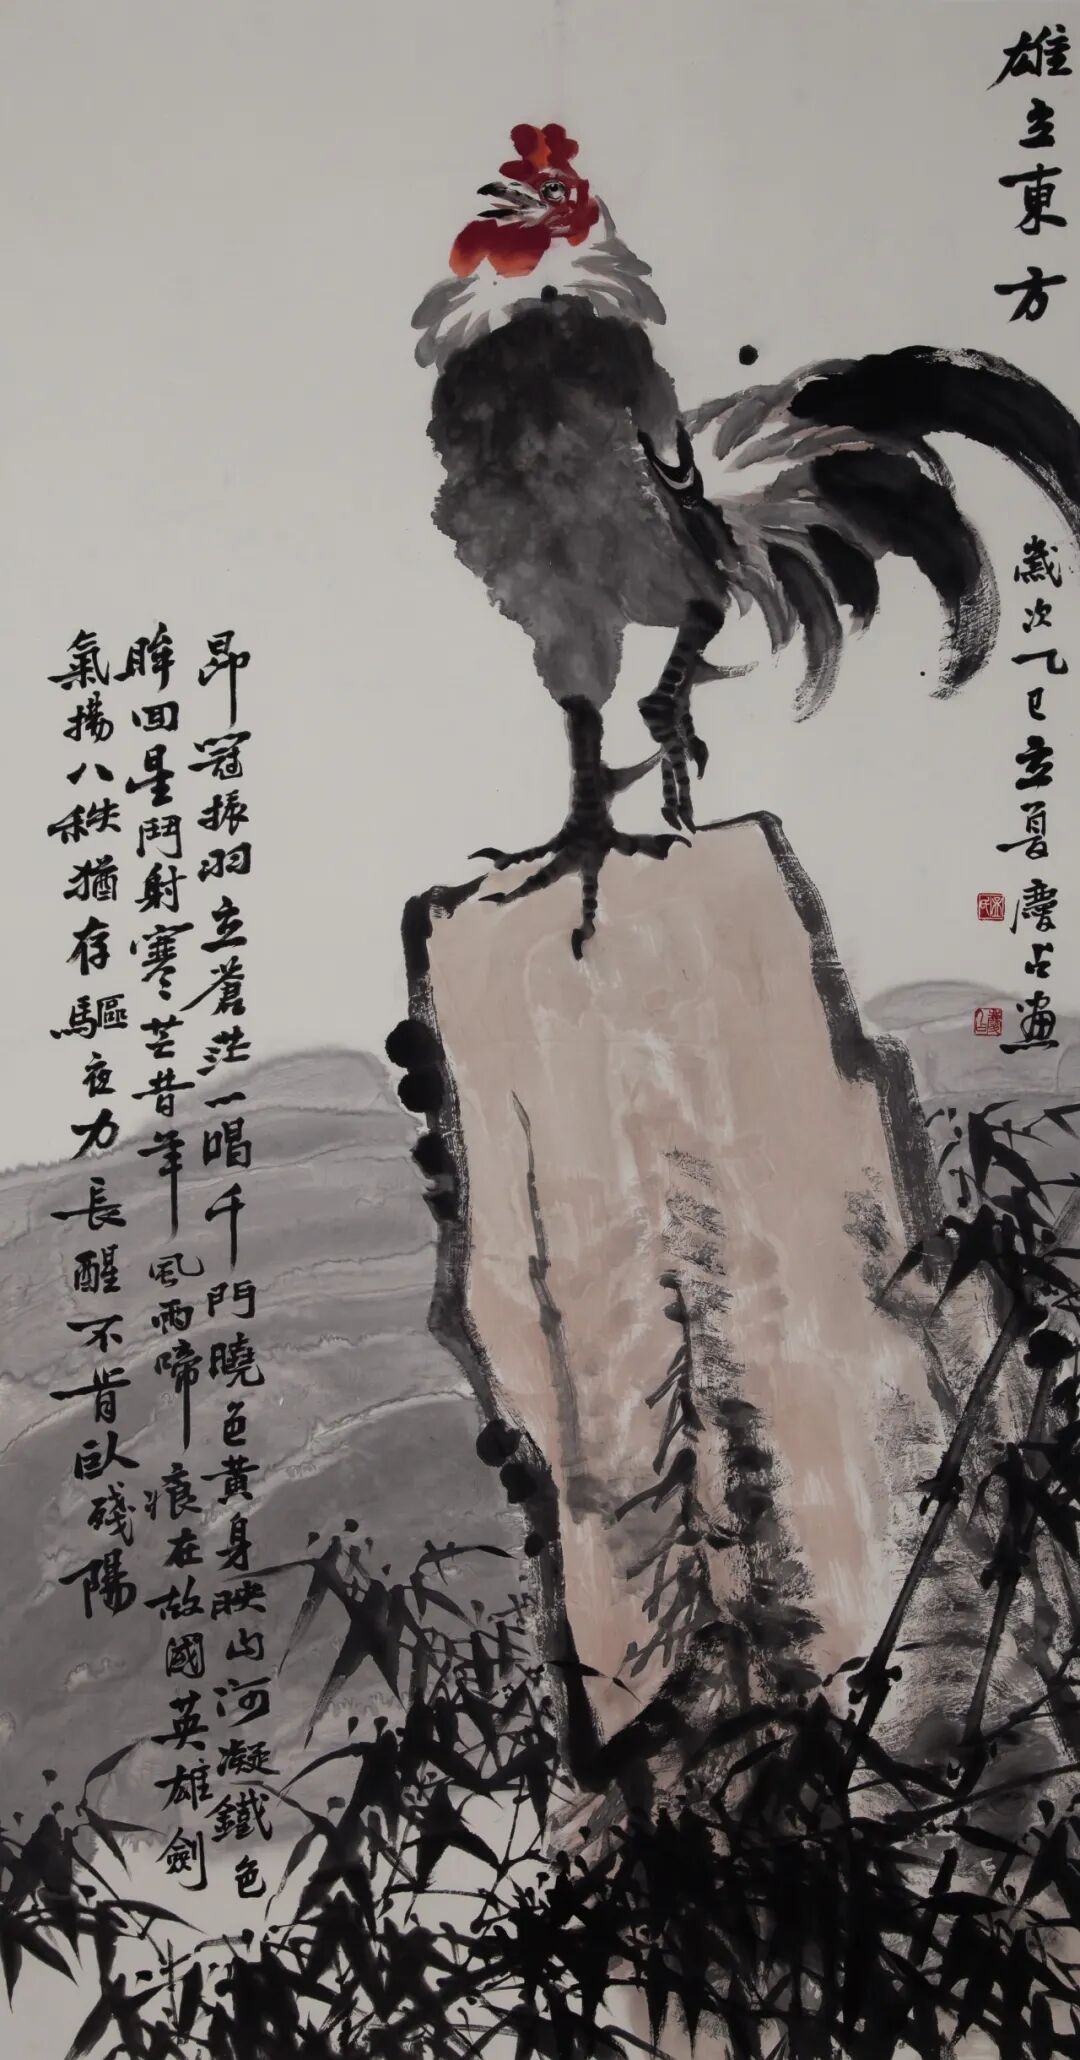 雄立東方
歲次乙巳立夏慶占畫
昂冠振羽立蒼茫一唱千門曉色黄身映山河凝鐵色
眸回星鬥射寒芒昔年風雨啼痕在故國英雄劍
氣揚八秩猶存驅夜力長醒不肯臥殘陽